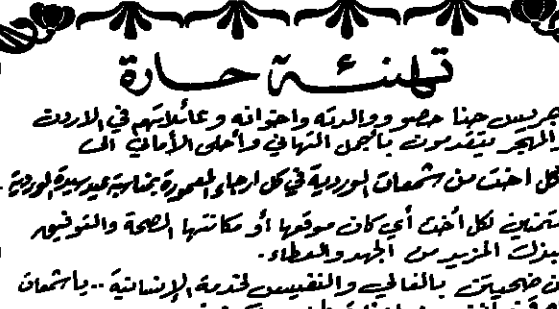 تهنئة حارة
جريس حنا حصو ووالدته واخوانه وعائلاتهم في الاردن
والمهجر يتقدمون بأجمل التهاني وأحلى الأماني الى
كل اخت من شمعات الوردية في كل ارجاء المعمورة بمناسبة عيد سيدة الوردية
متمنين لكل أخت أي كان موقعها أو مكانتها الصحة والتوفيق
بذل المزيد من الجهد والعطاء.
ضحيتن بالغالي والنفيس لخدمة الإنسانية .. يا شمعات